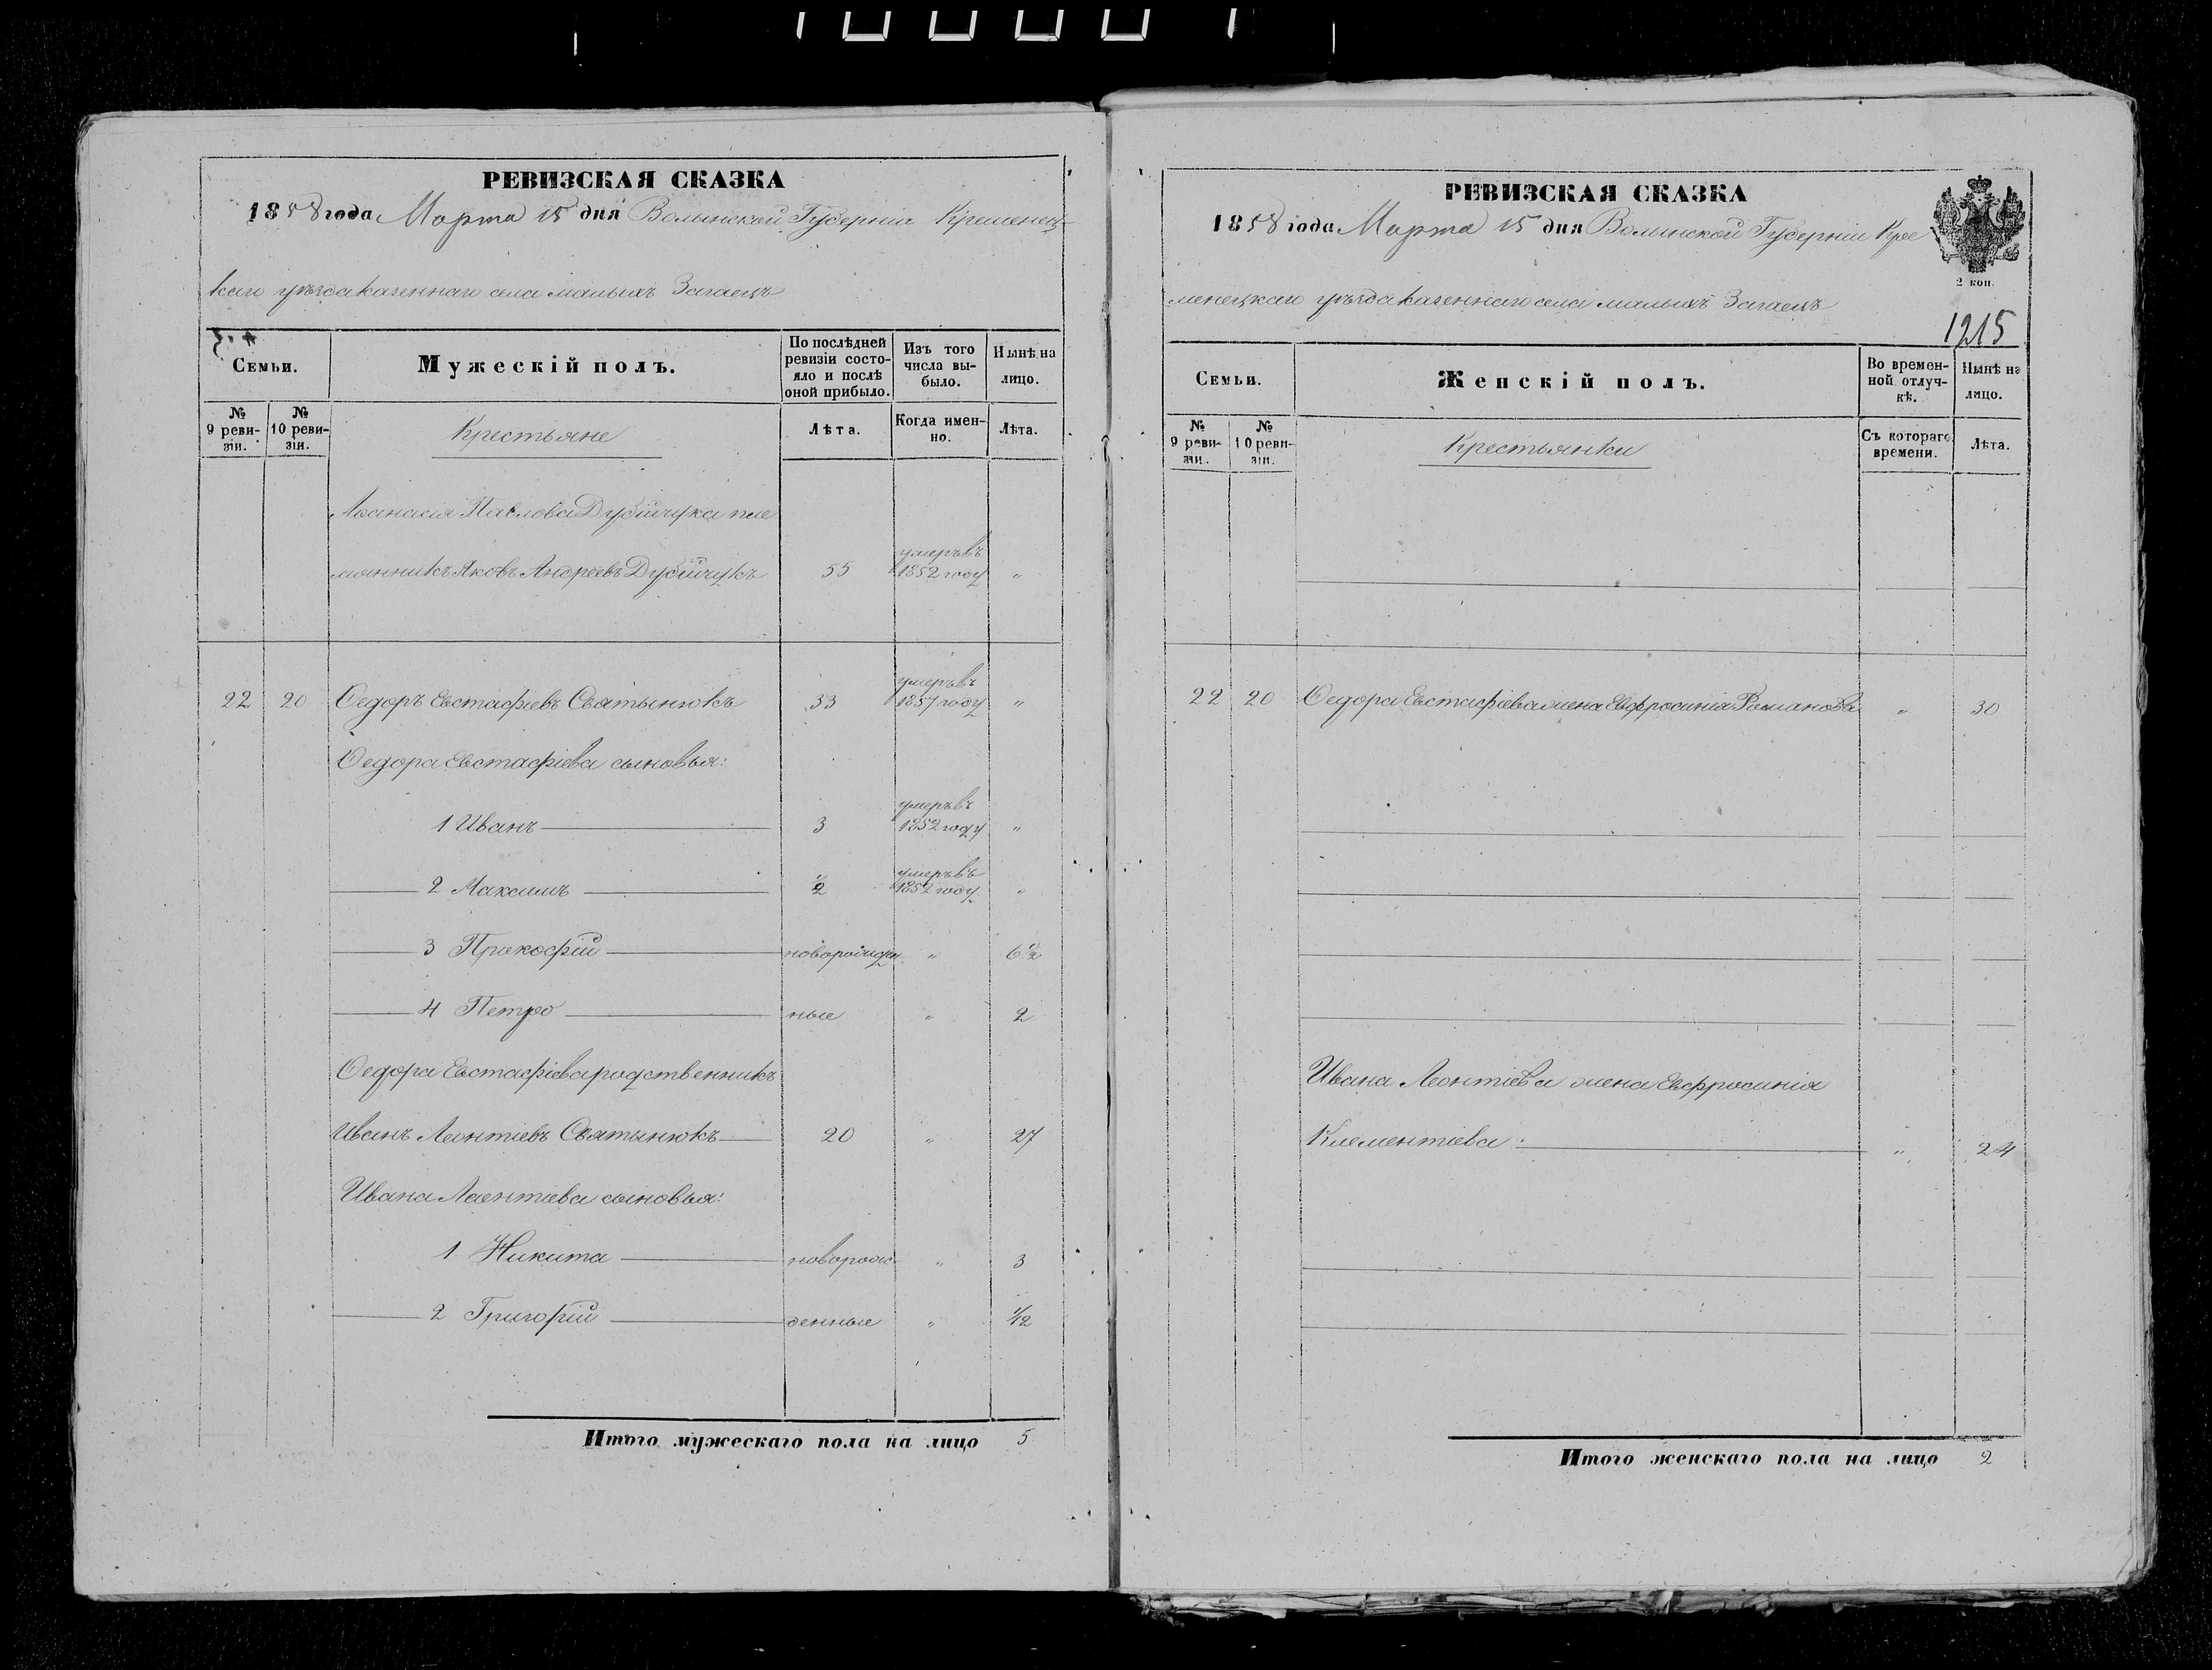 РЕВИЗСКАЯ СКАЗКА
1858 года Марта 15 дня Волынской Губерніи Кременец-
каго уѣзда казеннаго села малыхъ Загаецъ
Семьи.
Мужескій полъ.
По послѣдней ревизіи состо-яло и послѣ оной прибыло.
Изъ того числа вы-было.
Нынѣ на лицо.
№ 9 реви-зіи.
№ 10 реви-зіи.
Крестьяне
Лѣта.
Когда имен-но.
Лѣта.
Аѳанасія Павлова Дубійчука пле
умеръ въ
мянникъ Яковъ Андреевъ Дубійчукъ 55 1852 году "
умеръ въ
22 20 Ѳедоръ Евстафіевъ Святынюкъ 33 1857 году "
Ѳедора Евстафіева сыновья:
умеръ въ
1 Иванъ 3 1852 году "
умеръ въ
2 Максимъ 2 1852 году "
3 Прокофій новорожден " 6 1/2
4 Петро ные " 2
Ѳедора Евстафіева родственникъ
Иванъ Леонтіевъ Святынюкъ 20 " 27
Ивана Леонтіева сыновья:
1 Никита новорож " 3
2 Григорій денные " 1/2
Итого мужескаго пола на лицо 5
РЕВИЗСКАЯ СКАЗКА
1858 года Марта 15 дня Волынской Губерніи Кре
2 коп.
менецкаго уѣзда казеннаго села малыхъ Загаецъ
1215
Семьи.
Женскій полъ.
Во времен-ной отлуч-кѣ.
Нынѣ на лицо.
№ 9 реви-зіи.
№ 10 реви-зіи.
Крестьянки
Съ котораго времени.
Лѣта.
22 20 Ѳедора Евстафіева жена Евфросинія Романова " 30
Ивана Леонтіева жена Евфросинія
Клементіева " 24
Итого женскаго пола на лицо 2